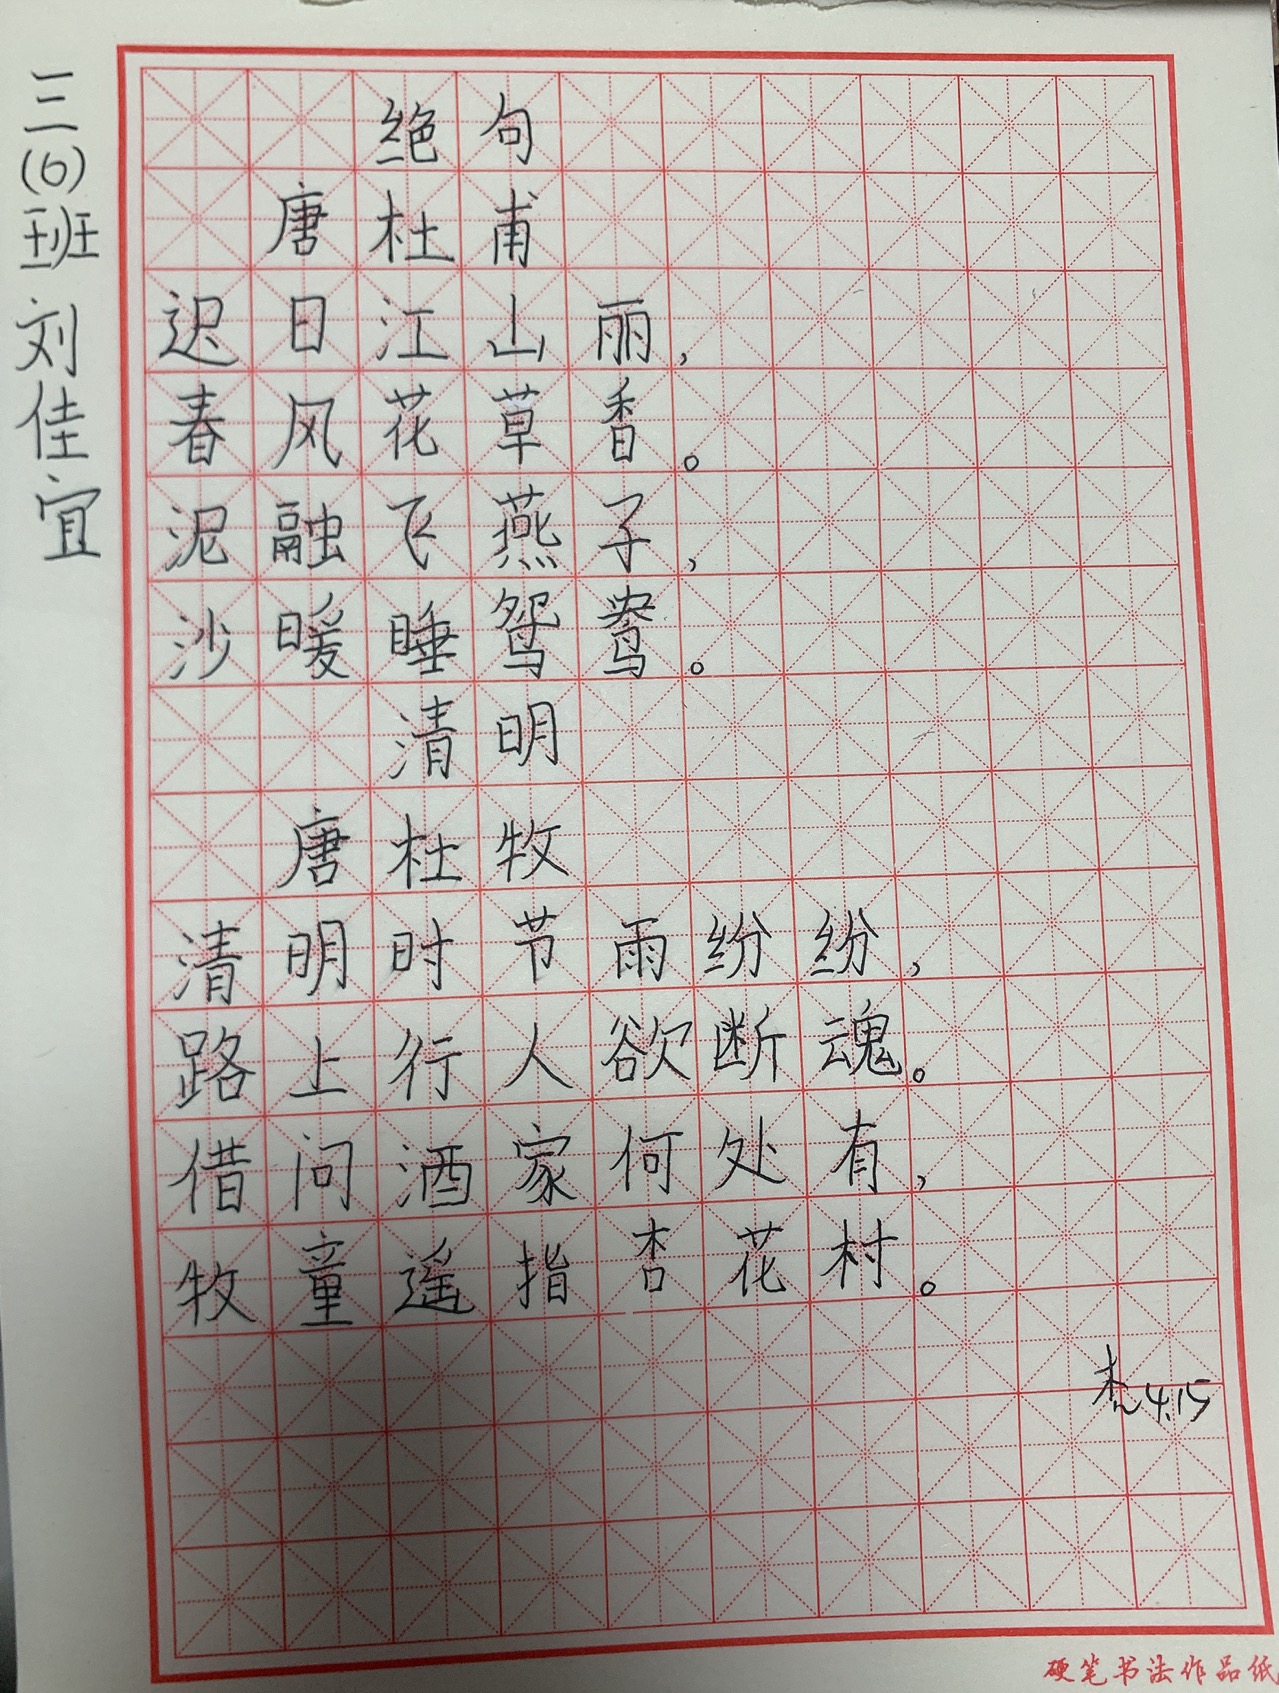 三(6)班 刘佳宜
绝句
唐杜甫
迟日江山丽，
春风花草香。
泥融飞燕子，
沙暖睡鸳鸯。
清明
唐杜牧
清明时节雨纷纷，
路上行人欲断魂。
借问酒家何处有，
牧童遥指杏花村。
4.15
硬笔书法作品纸